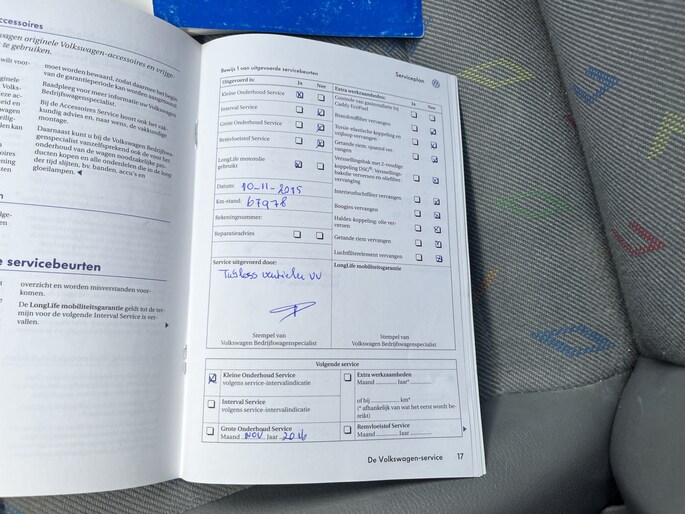 ccessoires
wagen originele Volkswagen-accessoires en vrijge-
te gebruiken.
wilt voor-
moet worden bewaard, zodat daarmee het begin
van de garantieperiode kan worden aangetoond
Raadpleeg voor meer informatie uw Volkswagen
Bedrijfswagenspecialist.
Bij de Accessoires Service hoort ook het vak-
kundig advies en, naar wens, de vakkundige
montage.
Daarnaast kunt u bij de Volkswagen Bedrijfswa-
genspecialist vanzelfsprekend ook de voor het
onderhoud van de wagen noodzakelijke pro-
ducten kopen en alle onderdelen die in de loop
der tijd slijten, bv. banden, accu's en
gloeilampen.
e servicebeurten
overzicht en worden misverstanden voor-
komen.
De LongLife mobiliteitsgarantie geldt tot de ter-
mijn voor de volgende Interval Service is ver-
vallen.
Bewijs 1 van uitgevoerde servicebeurten
Serviceplan
Uitgevoerd is:
Ja
Nee
Kleine Onderhoud Service
Interval Service
Grote Onderhoud Service
Remvloeistof Service
LongLife motorolie
gebruikt
Datum: 10-11-2015
Km-stand: 67978
Rekeningnummer:
Reparatieadvies
Extra werkzaamheden:
Ja
Nee
Caddy EcoFuel
Brandstoffilter vervangen
vrijloop vervangen
Getande riem, spanrol ver-
vangen
Versnellingsbak met 2-voudige
koppeling DSG®: Versnellings-
bakolie verversen en oliefilter-
vervanging
Interieurluchtfilter vervangen
Bougies vervangen
Haldex-koppeling: olie ver-
versen
Getande riem vervangen
Luchtfilterelement vervangen
Service uitgevoerd door:
LongLife mobiliteitsgarantie
Stempel van
Volkswagen Bedrijfswagenspecialist
Stempel van
Volkswagen Bedrijfswagenspecialist
Volgende service
Kleine Onderhoud Service
volgens service-intervalindicatie
Interval Service
volgens service-intervalindicatie
Grote Onderhoud Service
Maand NOV Jaar 2016
Extra werkzaamheden
Maand Jaar*
of bij km*
(* afhankelijk van wat het eerst wordt be-
reikt)
Remvloeistof Service
Maand Jaar
De Volkswagen-service 17